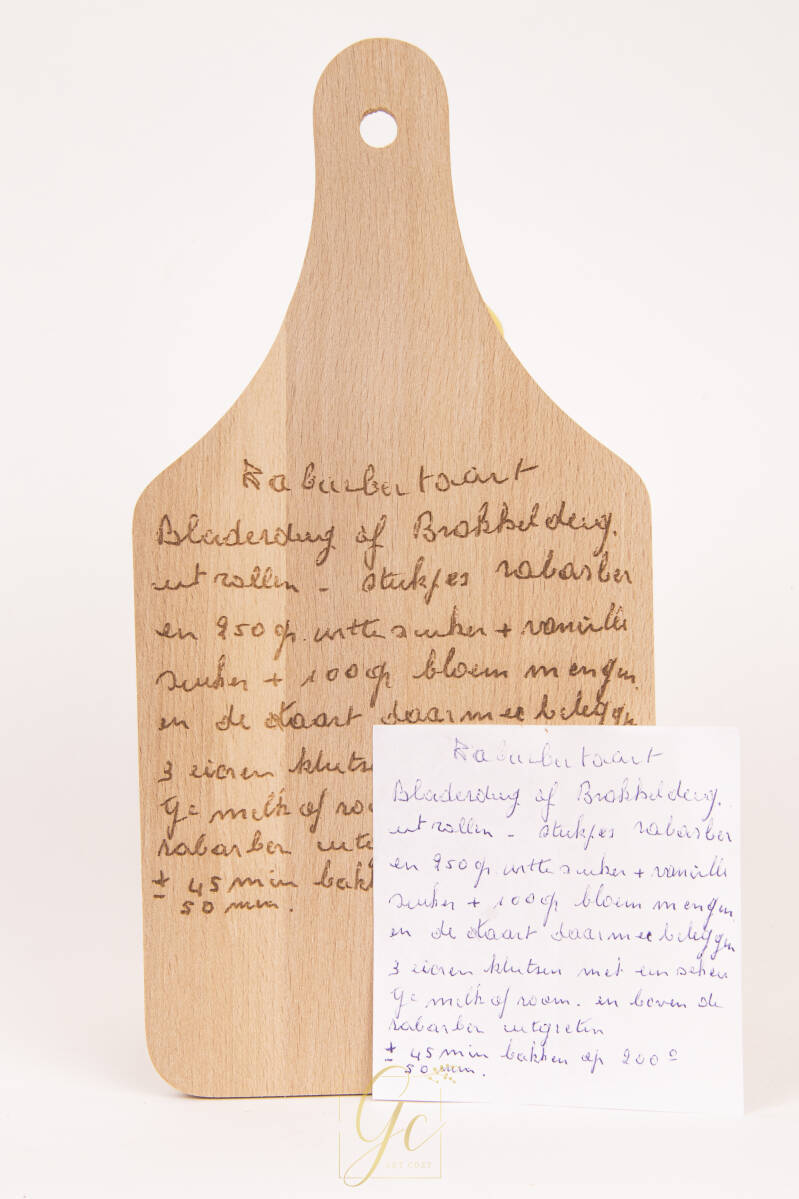 Rabarbertaart
Bladerdeeg of Brokkeldeeg.
uitrollen - stukjes rabarber
en 250 gr. witte suiker + vanille
suiker + 100 gr bloem mengen
en de taart daarmee beleggen
3 eieren klutsen
melk of roo
rabarber uitg
± 45 min bakk
50 min.
Rabarbertaart
Bladerdeeg of Brokkeldeeg.
uitrollen - stukjes rabarber
en 250 gr witte suiker + vanille
suiker + 100 gr bloem mengen
en de taart daarmee beleggen
3 eieren klutsen met een
melk of room. en boven de
rabarber uitgieten
± 45 min bakken op 200°
50 min.
gc
GET COZY